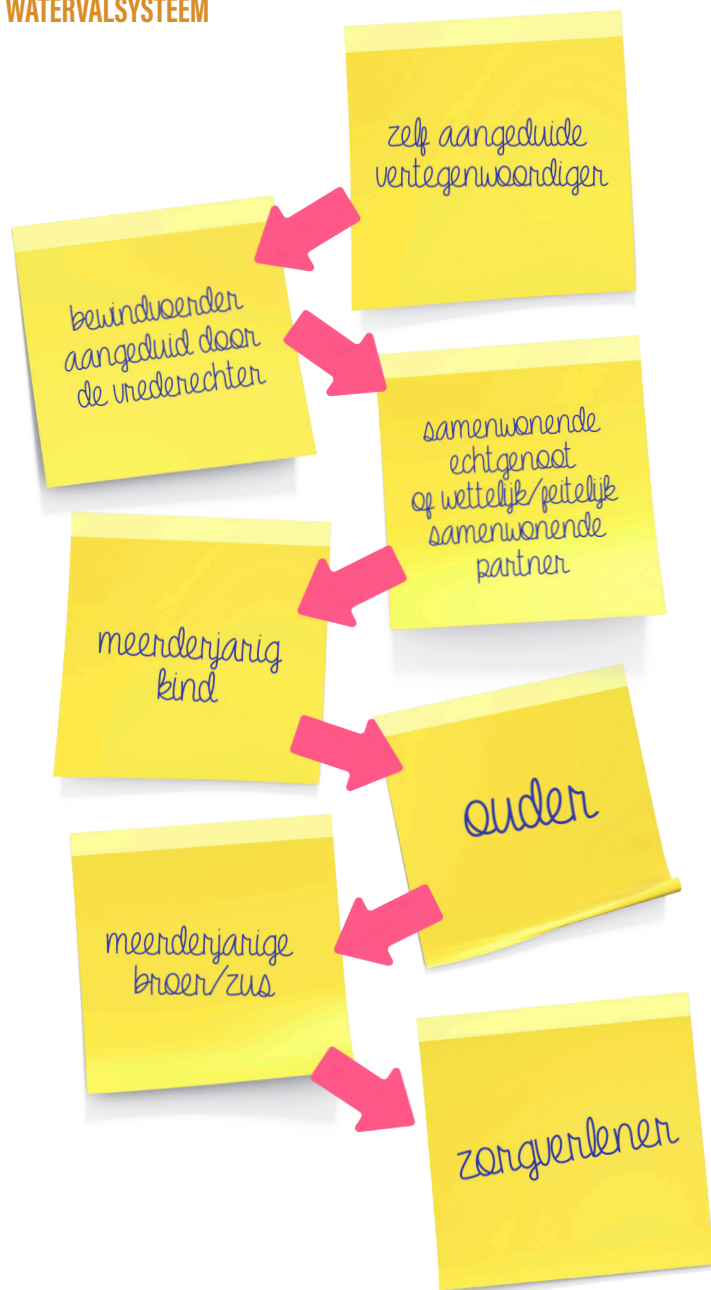 WATERVALSYSTEEM
zelf aangeduide
vertegenwoordiger
bewindvoerder
aangeduid door
de vrederechter
samenwonende
echtgenoot
of wettelijk/feitelijk
samenwonende
partner
meerderjarig
kind
ouder
meerderjarige
broer/zus
zorgverlener